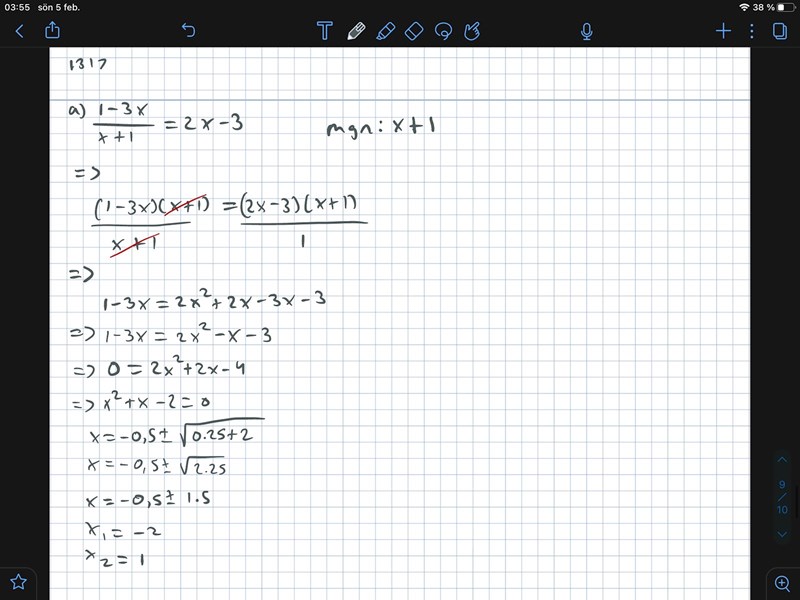 03:55 sön 5 feb.
38 %
1317
a) 1-3x / x+1 = 2x-3
mgn: x+1
=>
(1-3x)(x+1) / x+1 = (2x-3)(x+1) / 1
=>
1-3x = 2x²+2x-3x-3
=> 1-3x = 2x²-x-3
=> 0 = 2x²+2x-4
=> x²+x-2=0
x=-0,5± √0.25+2
x=-0,5± √2.25
x=-0,5± 1.5
x₁ = -2
x₂ = 1
9
/
10